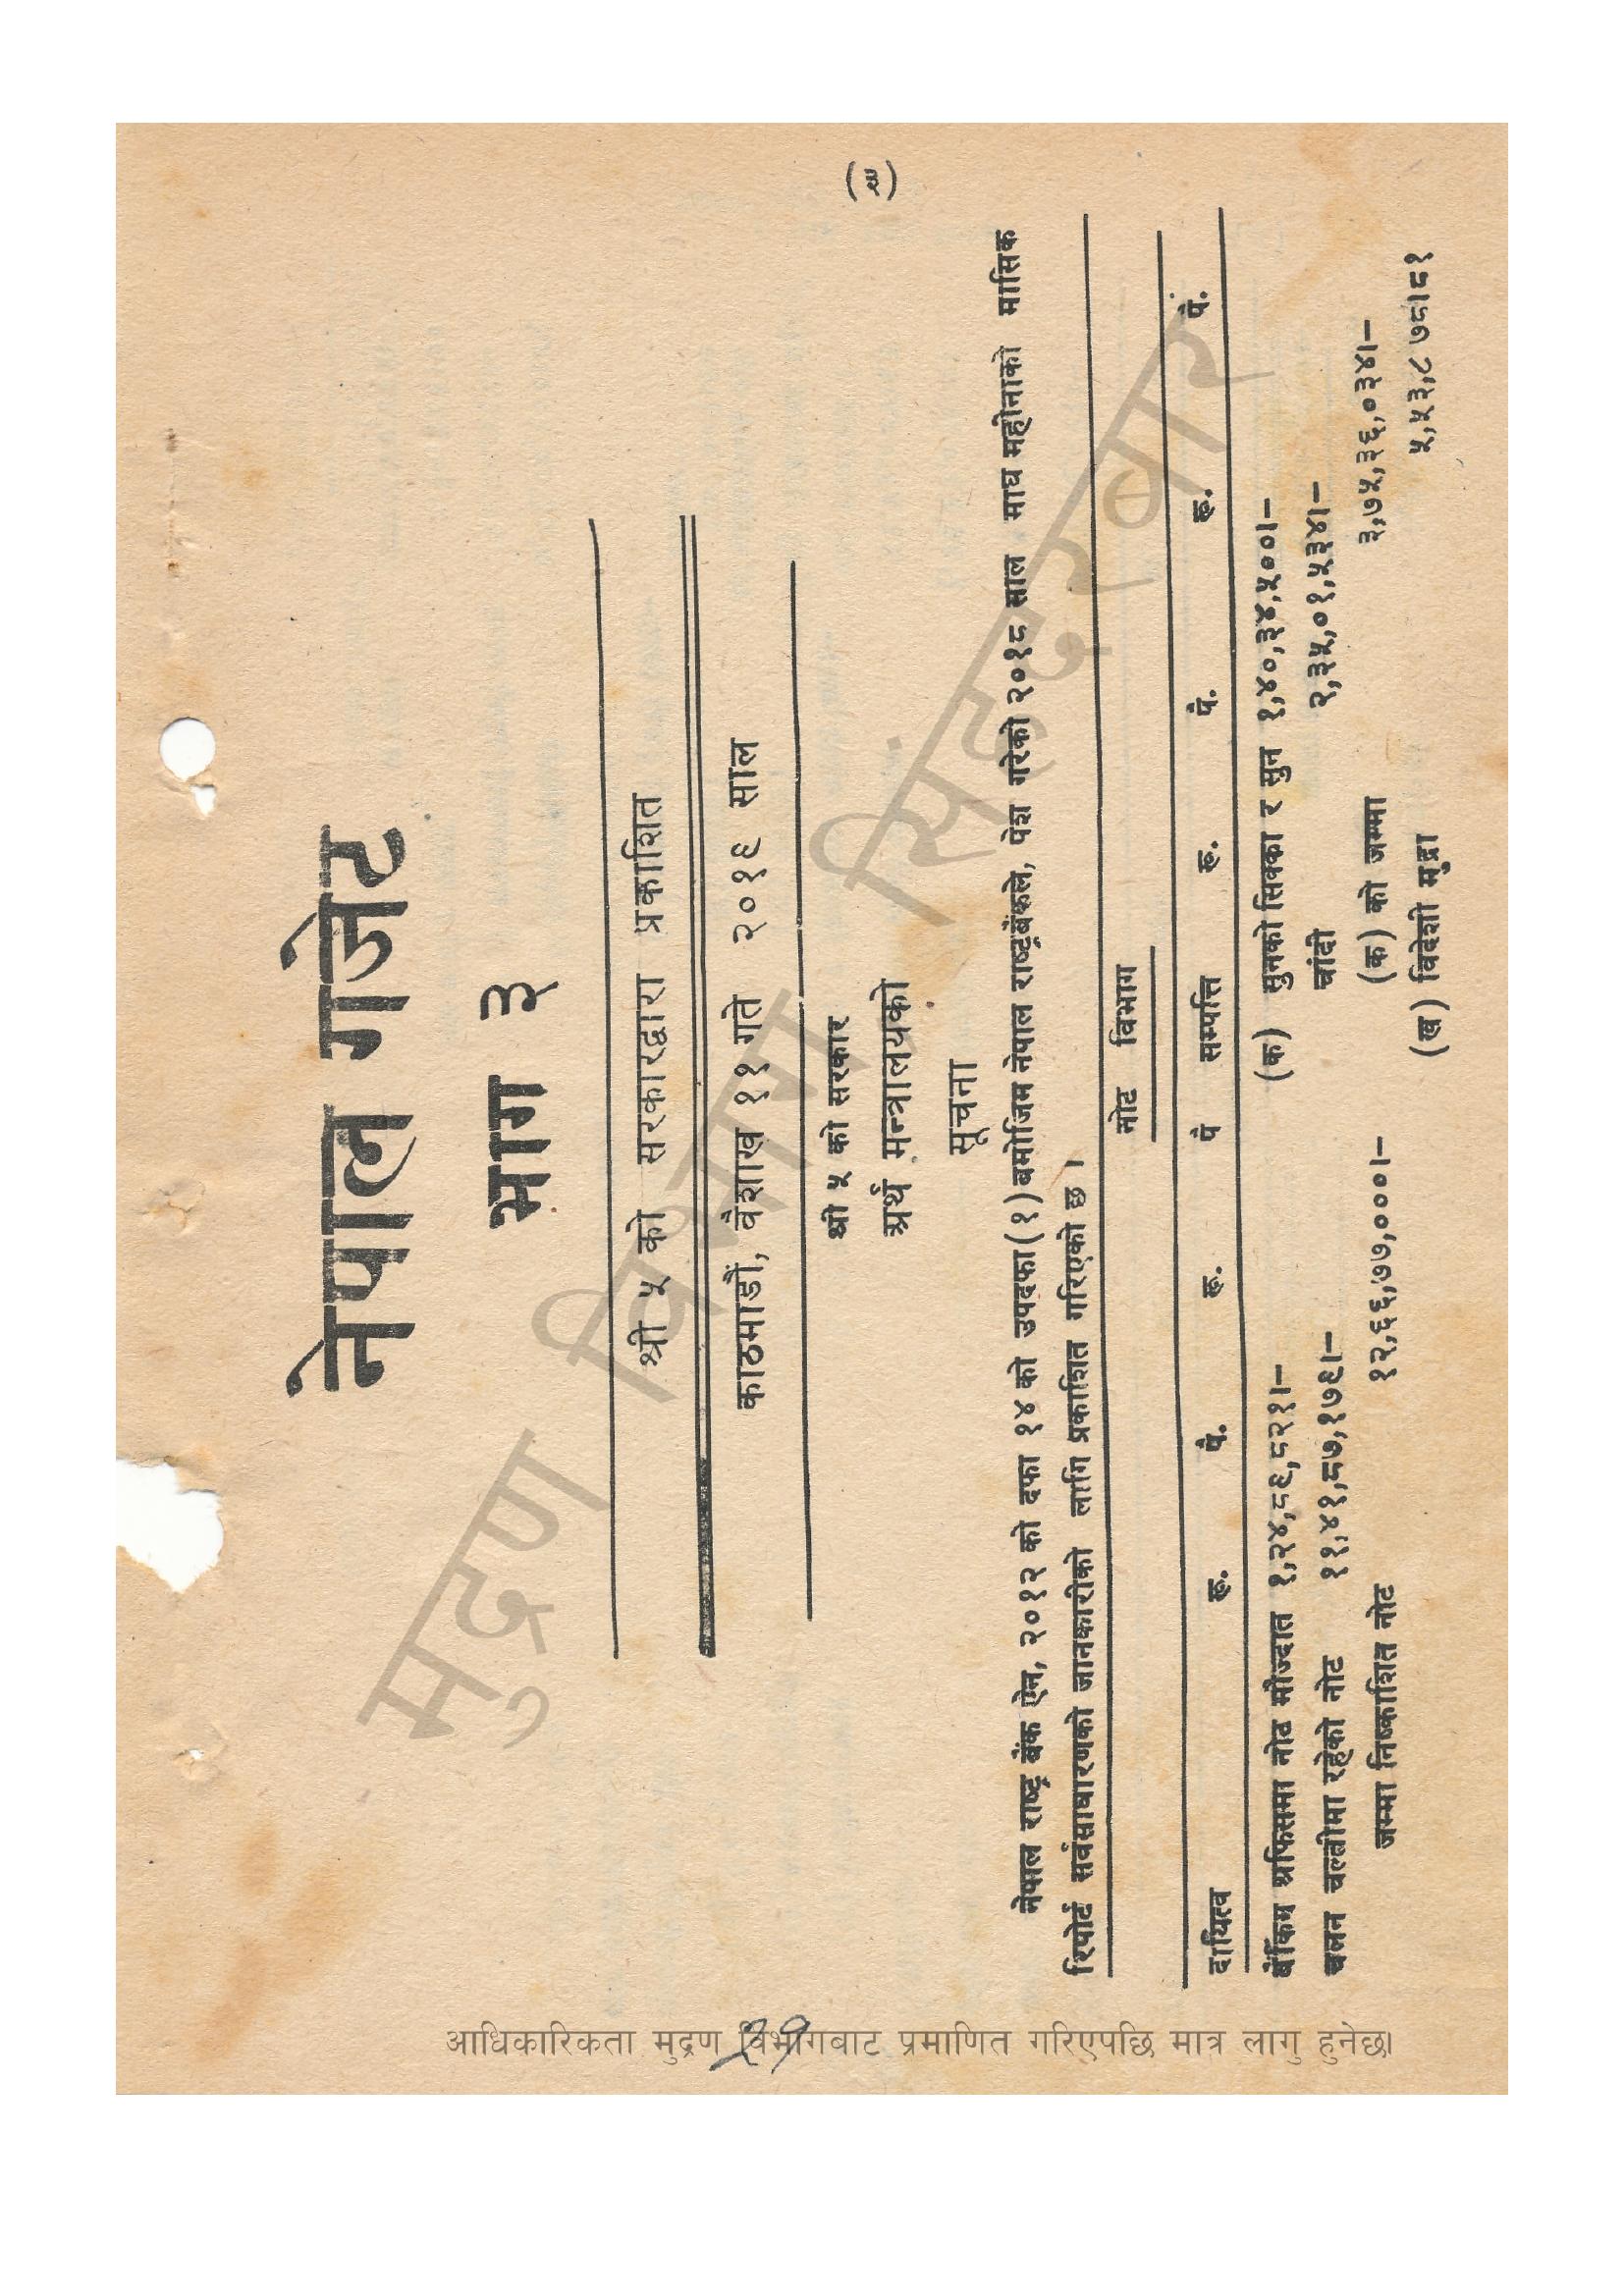 नेपाल गजेट
भाग ३
श्री ५ को सरकारद्वारा प्रकाशित
काठमाडौं, वैशाख ११ गते २०१९ साल
श्री ५ को सरकार
अर्थ मन्त्रालयको
सूचना
नेपाल राष्ट्र बैंक ऐन, २०१२ को दफा १४ को उपदफा (१) बमोजिम नेपाल राष्ट्रबैंकले, पेश गरेको २०१८ साल माघ महीनाको मासिक
रिपोर्ट सर्वसाधारणको जानकारीको लागि प्रकाशित गरिएको छ ।
नोट विभाग
दायित्व रू. पै. रू. पै सम्पत्ति रू. पै. रू. पै.
बैंकिंग अफिसमा नोट मौज्दात १,२४,८९,८२१।– (क) सुनको सिक्का र सुन १,४०,३४,५००।–
चलन चल्तीमा रहेको नोट ११,४१,८७,१७९।– चांदी २,३५,०१,५३४।–
जम्मा निष्काशित नोट १२,६६,७७,०००।– (क) को जम्मा ३,७५,३६,०३४।–
(ख) विदेशी मुद्रा ५,५३,८ ७८।८१
(क)
मुद्रण विभाग सिंहदरवार
२१
आधिकारिकता मुद्रण विभागबाट प्रमाणित गरिएपछि मात्र लागु हुनेछ।